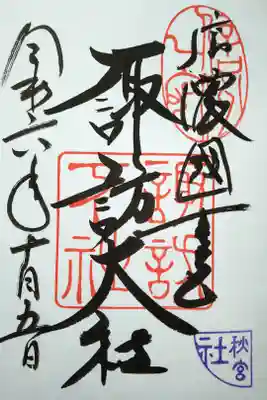 信濃國一之宮
諏訪大社
令和六年十月五日
秋宮
社